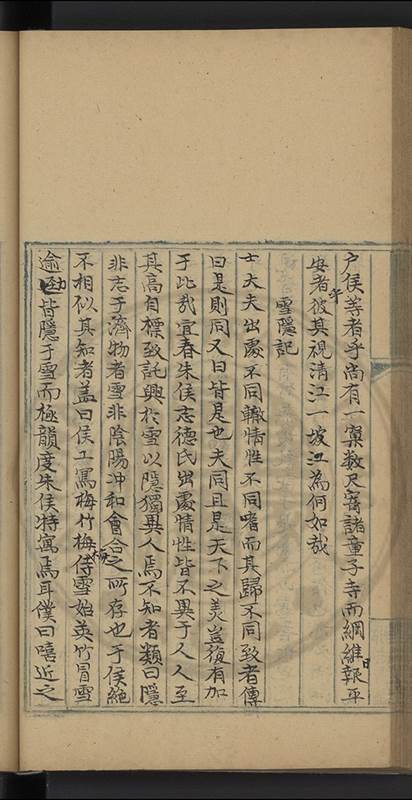 戶侯等者乎尚有一窠數尺窨諸童子寺而綱維日報平
安者彼其視清江一坡江為何如哉
雪隱記
士大夫出處不同轍情性不同嗜而其歸不同致者傳
曰是則同又曰皆是也夫同且是天下之美豈復有加
于此哉宜春朱侯志德氏出處情性皆不異于人人至
其高自標致託興於雪以隱獨異人焉不知者類曰隱
非志于濟物者雪非陰陽沖和會合之所存也于侯絕
不相似其知者蓋曰侯工寫梅竹梅侍雪始英竹冒雪
逾勁皆隱于雪而極韻度朱侯特寓焉耳僕曰嘻近之